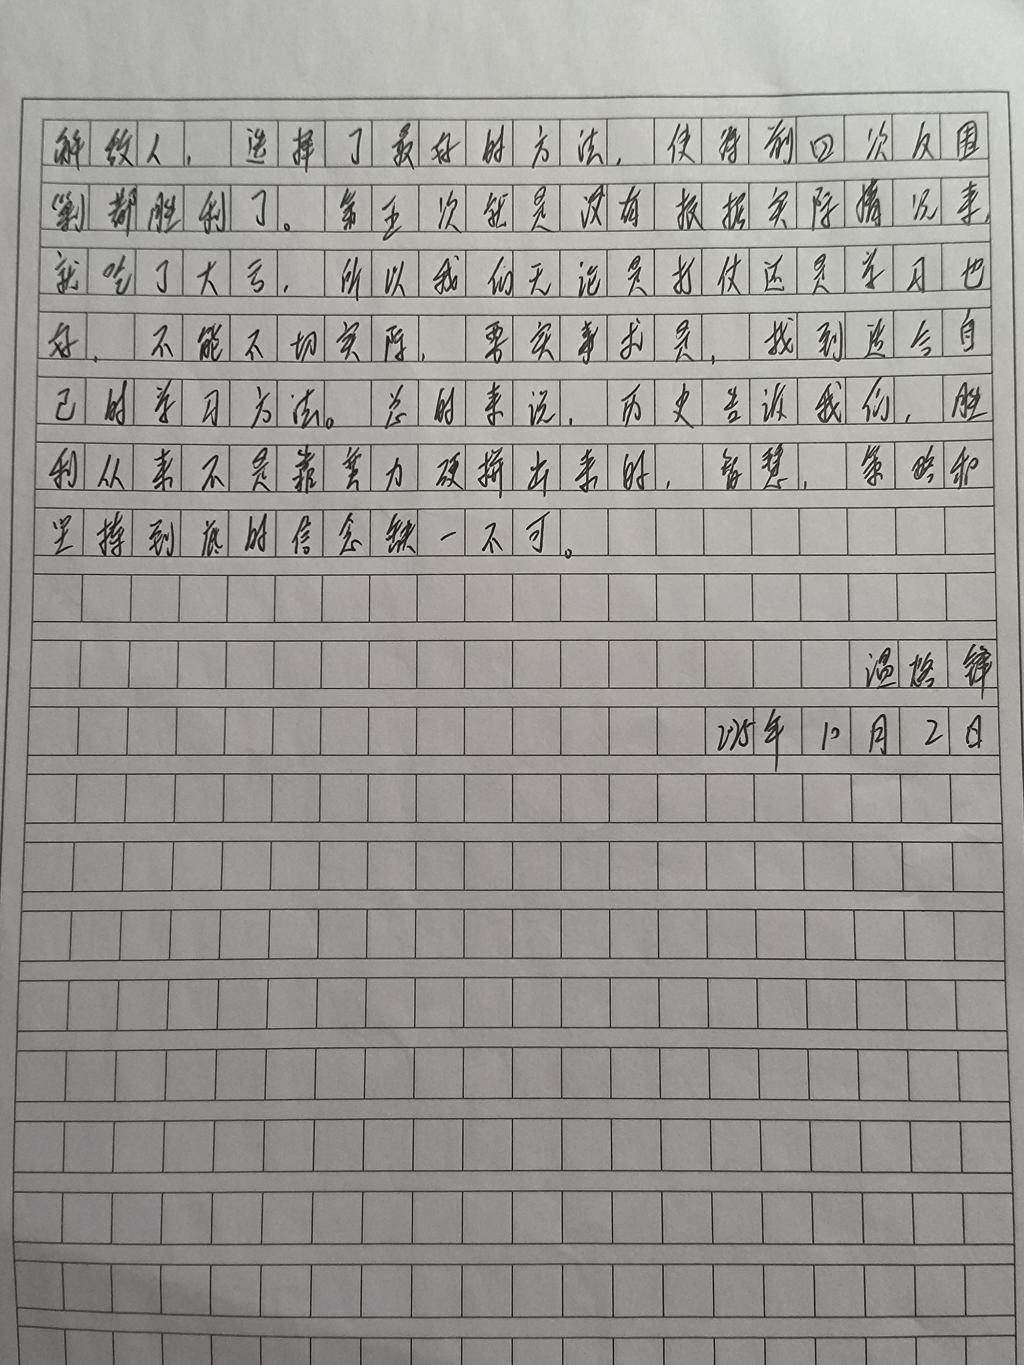 解敌人，选择了最好的方法，使得前四次反围
剿都胜利了。第五次就是没有根据实际情况来，
就吃了大亏，所以我们无论是打仗还是学习也
好，不能不切实际，要实事求是，找到适合自
己的学习方法。总的来说，历史告诉我们，胜
利从来不是靠蛮力硬拼出来的，智慧，策略和
坚持到底的信念缺一不可。
温焓锋
2025年10月2日